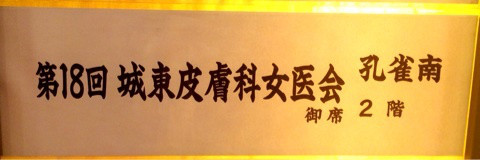 第18回 城東皮膚科女医会 孔雀南
御席 2 階